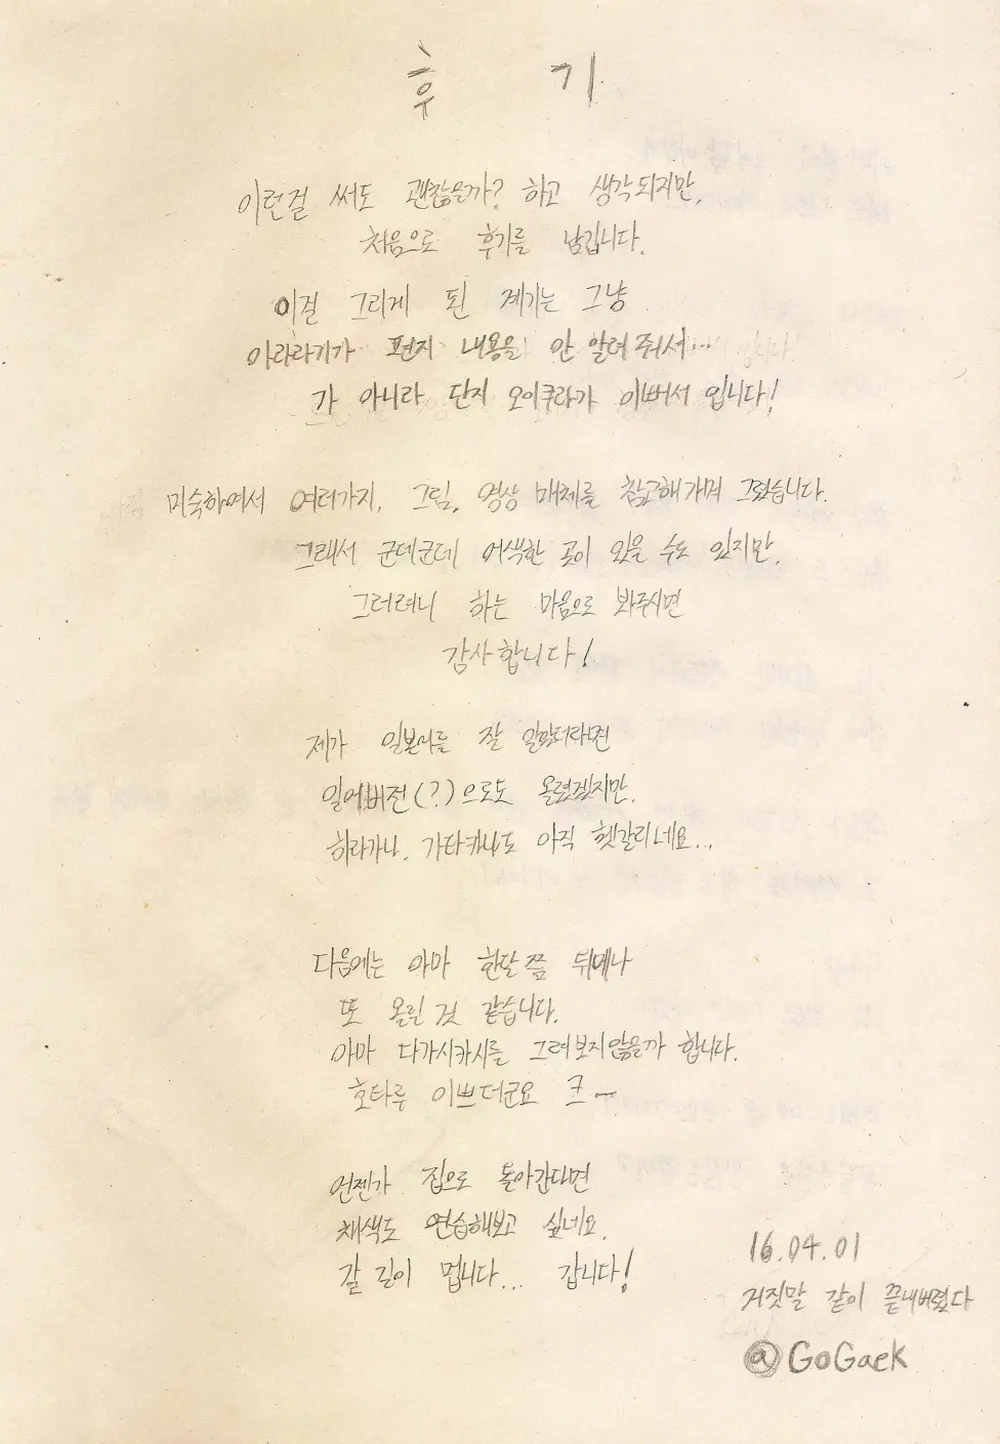 후 기
이런걸 써도 괜찮은가? 하고 생각되지만,
처음으로 후기를 남깁니다.
이걸 그리게 된 계기는 그냥
아라라기가 편지 내용을 안 알려줘서...
가 아니라 단지 오이쿠라가 이뻐서 입니다!
미숙하여서 여러가지, 그림, 영상 매체를 참고해가며 그렸습니다.
그래서 군데군데 어색한 곳이 있을 수도 있지만,
그러려니 하는 마음으로 봐주시면
감사합니다!
제가 일본어를 잘 알았더라면
일어버전(?)으로도 올렸겠지만,
히라가나, 가타카나도 아직 헷갈리네요...
다음에는 아마 한달쯤 뒤에나
또 올린 것 같습니다.
아마 다가시카시를 그려보지않을까 합니다.
호타루 이쁘더군요 크-
언젠가 집으로 돌아간다면
채색도 연습해보고 싶네요.
갈 길이 멉니다... 갑니다!
16.04.01
거짓말 같이 끝내버렸다
@GoGaek